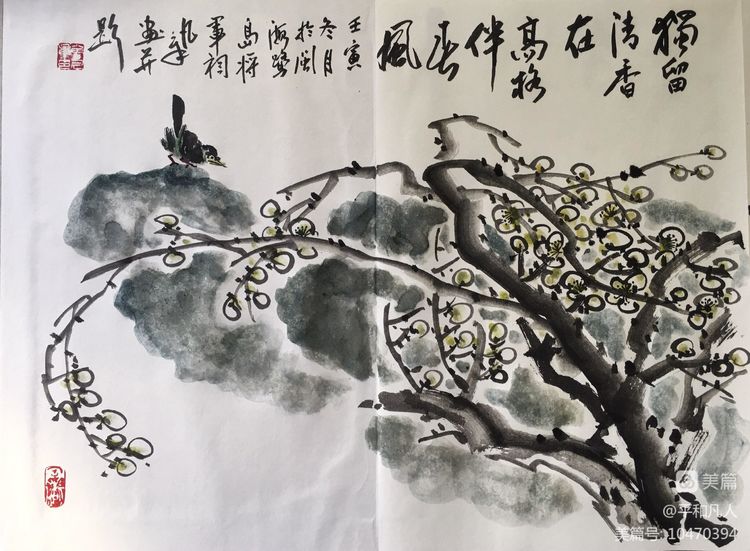 獨留
清香
在
高格
伴
春
風
壬寅
冬月
於閩
海鷺
島將
軍祠
龍章
畫并
題
美篇
@平和凡人
美篇号: 10470394